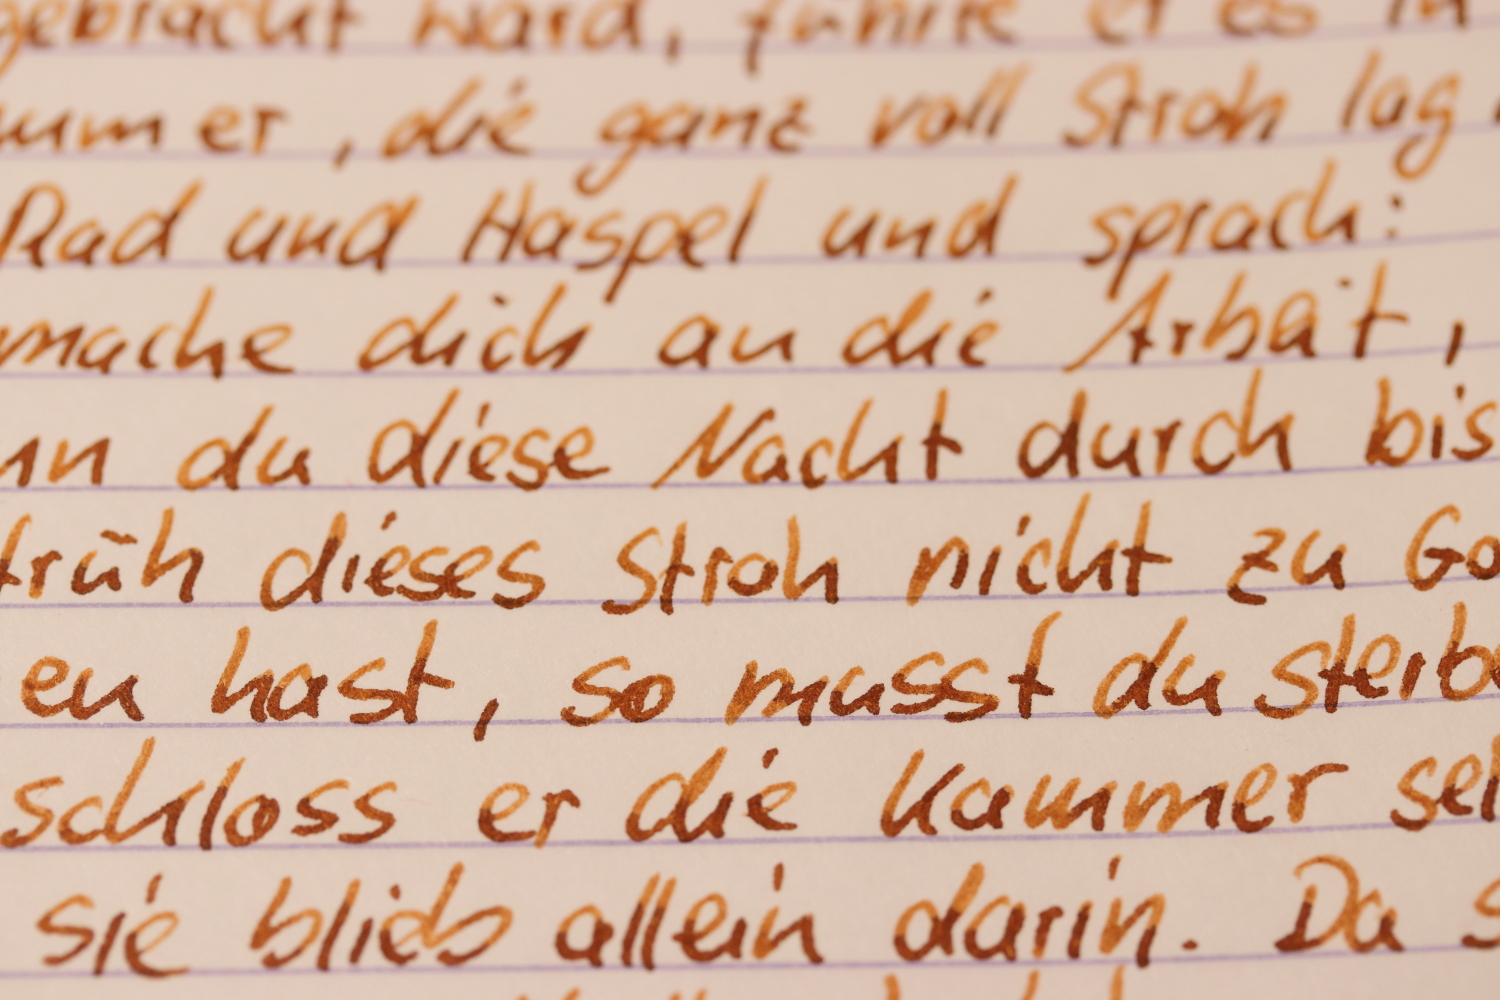 gebracht ward, führte er es in
ummer, die ganz voll Stroh lag
Rad und Haspel und sprach:
mache dich an die Arbeit,
nn du diese Nacht durch bis
früh dieses Stroh nicht zu Go
en hast, so musst du sterbe
schloss er die Kammer sel
sie blieb allein darin. Da s